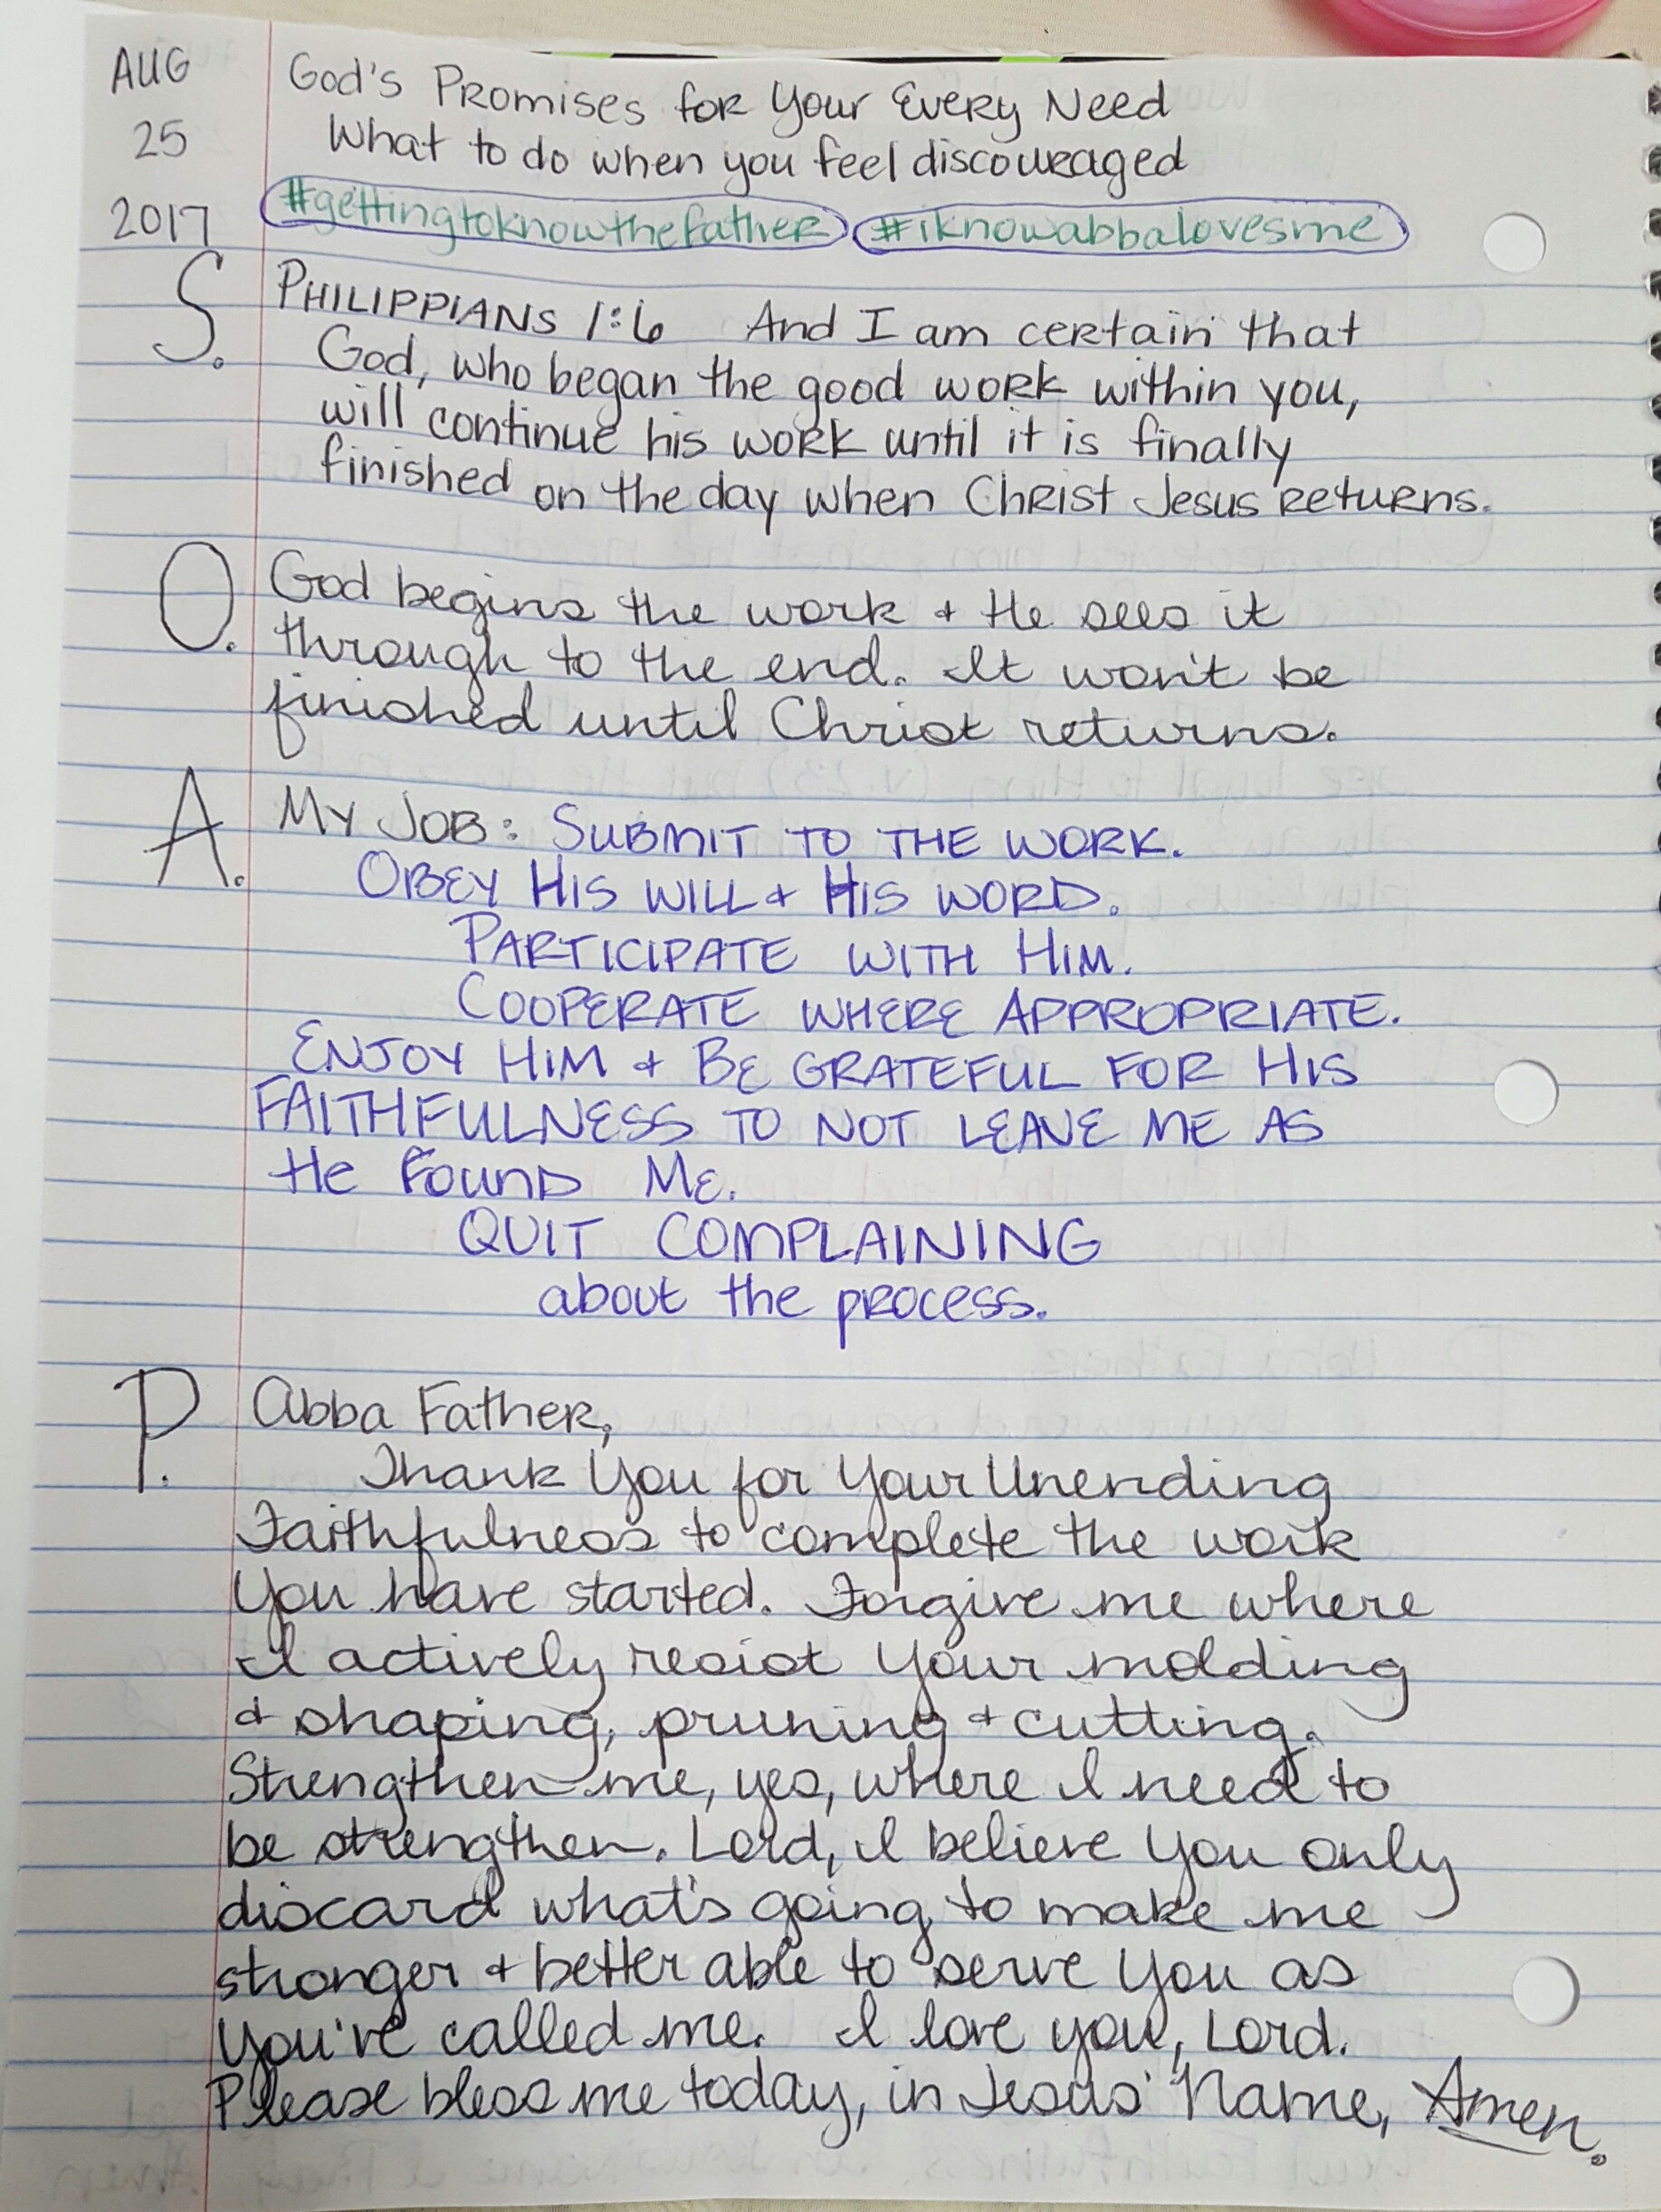 AUG God's Promises for Your Every Need
25 What to do when you feel discouraged
2017 #gettingtoknowthefather #iknowabbalovesme
S. PHILIPPIANS 1:6 And I am certain that
God, who began the good work within you,
will continue his work until it is finally
finished on the day when Christ Jesus returns.
O. God begins the work + He sees it
through to the end. It won't be
finished until Christ returns.
A. MY JOB: SUBMIT TO THE WORK.
OBEY HIS WILL + HIS WORD.
PARTICIPATE WITH HIM.
COOPERATE WHERE APPROPRIATE.
ENJOY HIM + BE GRATEFUL FOR HIS
FAITHFULNESS TO NOT LEAVE ME AS
He Found Me.
QUIT COMPLAINING
about the process.
P. Abba Father,
Thank You for Your Unending
Faithfulness to complete the work
You have started. Forgive me where
I actively resist Your molding
+ shaping, pruning + cutting.
Strengthen me, yes, where I need to
be strengthen. Lord, I believe You only
discard what's going to make me
stronger + better able to serve You as
You've called me. I love you, Lord.
Please bless me today, in Jesus' Name, Amen.